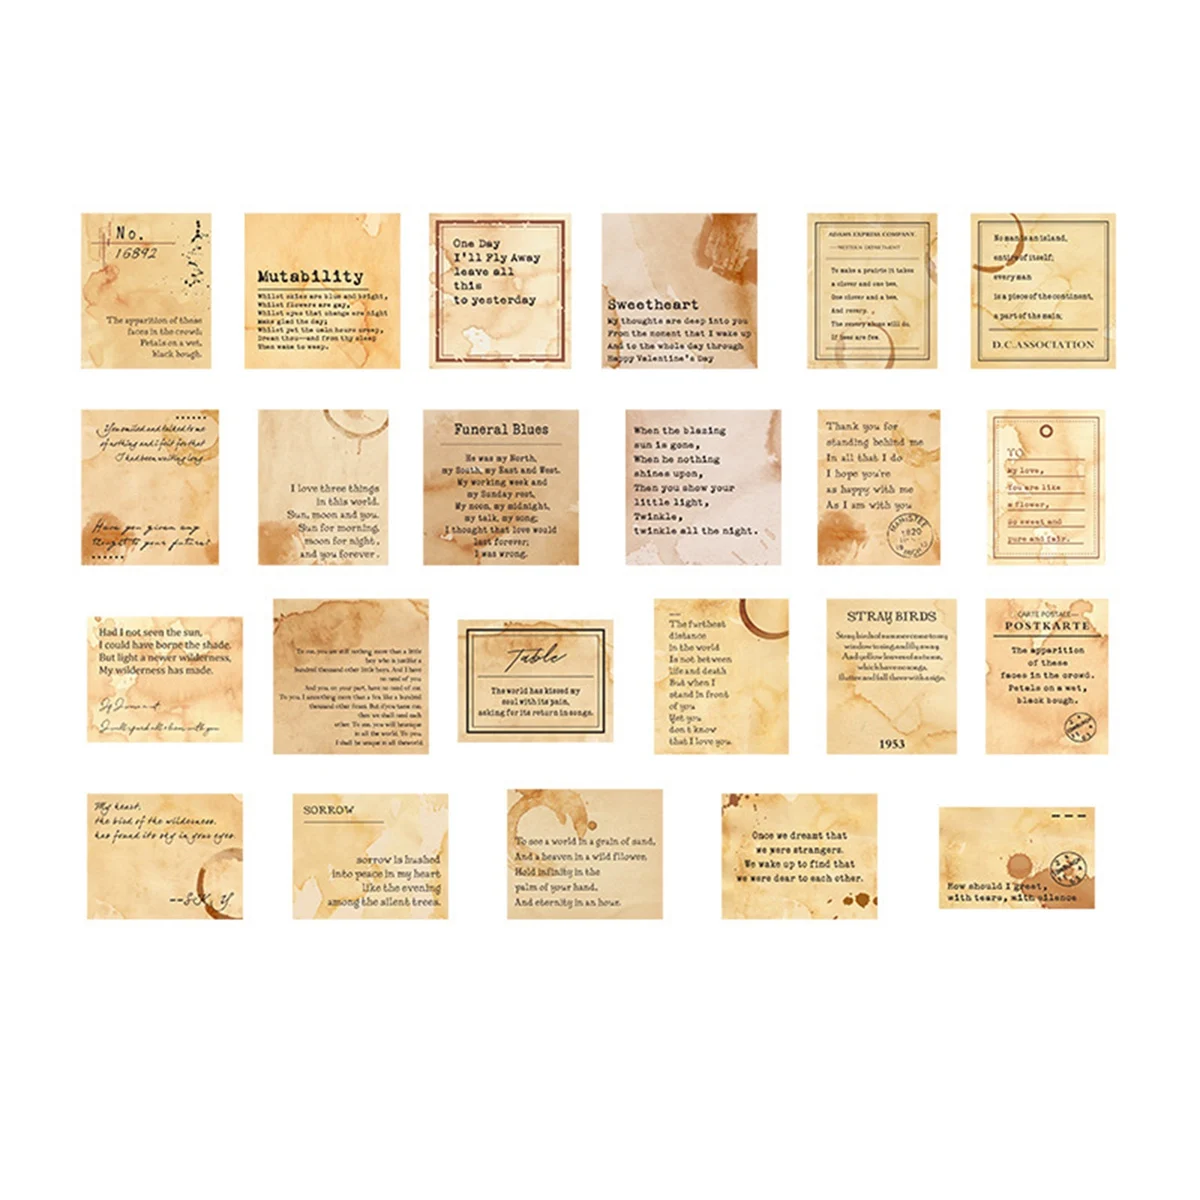 No.
16892
The apparition of these
faces in the crowd:
Petals on a wet,
black bough.
Mutability
Whilst skies are blue and bright,
Whilst flowers are gay,
Whilst eyes that change ere night
Make glad the day;
Whilst yet the calm hours creep,
Dream thou—and from thy sleep
Then wake to weep.
One Day
I'll Fly Away
leave all
this
to yesterday
Sweetheart
My thoughts are deep into you
From the moment that I wake up
And to the whole day through
Happy Valentine's Day
ADAMS EXPRESS COMPANY.
WESTERN DEPARTMENT
To make a prairie it takes
a clover and one bee,
One clover and a bee,
And revery.
The revery alone will do,
If bees are few.
No man is an island,
entire of itself;
every man
is a piece of the continent,
a part of the main;
D.C.ASSOCIATION
You smiled and talked to me
of nothing and I felt for that
I had been waiting long.
Have you given any
thought to your future?
I love three things
in this world.
Sun, moon and you.
Sun for morning,
moon for night,
and you forever.
Funeral Blues
He was my North,
my South, my East and West.
My working week and
my Sunday rest,
My noon, my midnight,
my talk, my song;
I thought that love would
last forever;
I was wrong.
When the blazing
sun is gone,
When he nothing
shines upon,
Then you show your
little light,
Twinkle,
twinkle all the night.
Thank you for
standing behind me
In all that I do
I hope you're
as happy with me
As I am with you
MANISTEE
1820
MICH
TO
my love,
You are like
a flower,
so sweet and
pure and fair.
Had I not seen the sun,
I could have borne the shade.
But light a newer wilderness,
My wilderness has made.
To me, you are still nothing more than a little
boy who is just like a
hundred thousand other little boys. And I have
no need of you.
And you, on your part, have no need of me.
To you, I am nothing more than a fox like a hundred
thousand other foxes. But if you tame me,
then we shall need each
other. To me, you will be unique
in all the world. To you,
I shall be unique in all the world.
Table
The world has kissed my
soul with its pain,
asking for its return in songs.
The furthest
distance
in the world
Is not between
life and death
But when I
stand in front
of you
Yet you
don't know
that I love you.
STRAY BIRDS
Stray birds of summer come to my
window to sing and fly away.
And yellow leaves of autumn,
which have no songs,
flutter and fall there with a sign.
1953
CARTE POSTALE
POSTKARTE
The apparition
of these
faces in the crowd.
Petals on a wet,
black bough.
My heart,
the bird of the wilderness,
has found its sky in your eyes.
SORROW
sorrow is hushed
into peace in my heart
like the evening
among the silent trees.
To see a world in a grain of sand,
And a heaven in a wild fllower,
Hold infinity in the
palm of your hand,
And eternity in an hour.
Once we dreamt that
we were strangers.
We wake up to find that
we were dear to each other.
How should I greet,
with tears, with silence